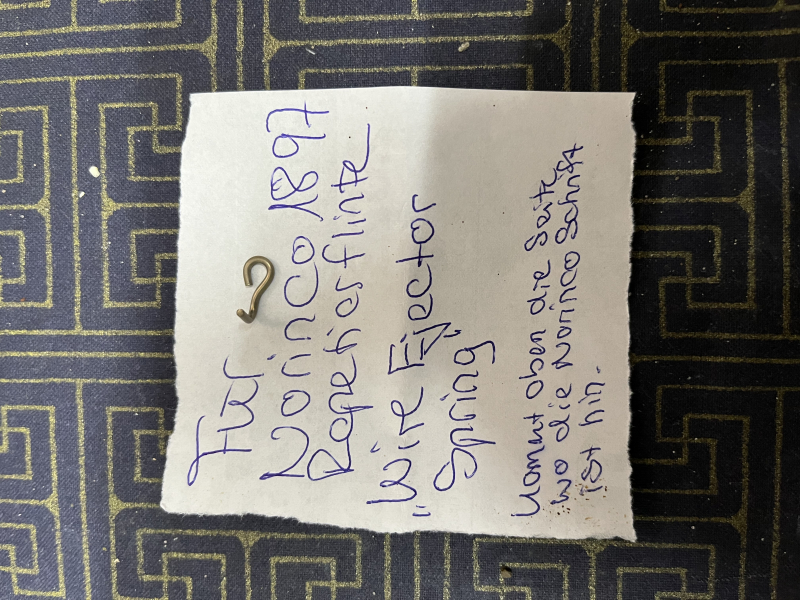 Für
Norinco 1897
Repetierflinte
„Wire Ejector
Spring"
Kommt oben die Seite
wo die Norinco Schrift
ist hin.